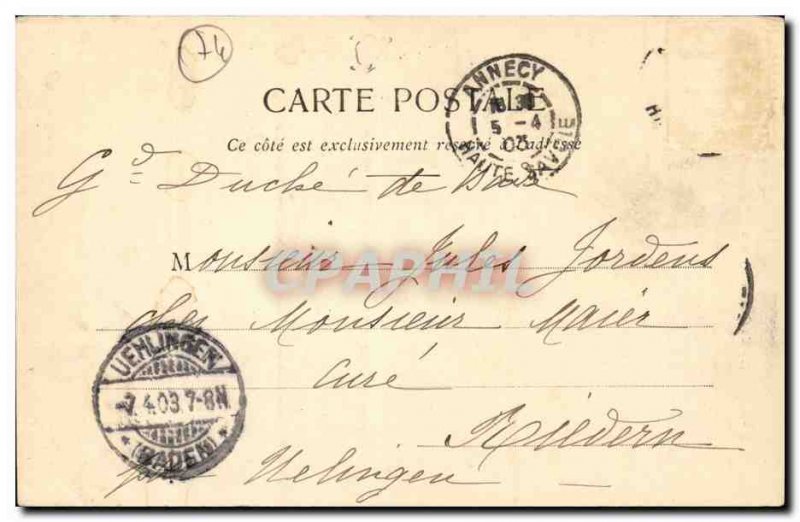 74
CARTE POSTALE
Ce côté est exclusivement réservé à l'adresse
ANNECY
5 -4
03
HAUTE SAVOIE
Gd Duché de Bade
Monsieur Jules Jordens
CPAPHIL
chez Monsieur Maier
curé
UEHLINGEN
-7.4.03.7-8N
* (BADEN) *
Riedern
Uelingen